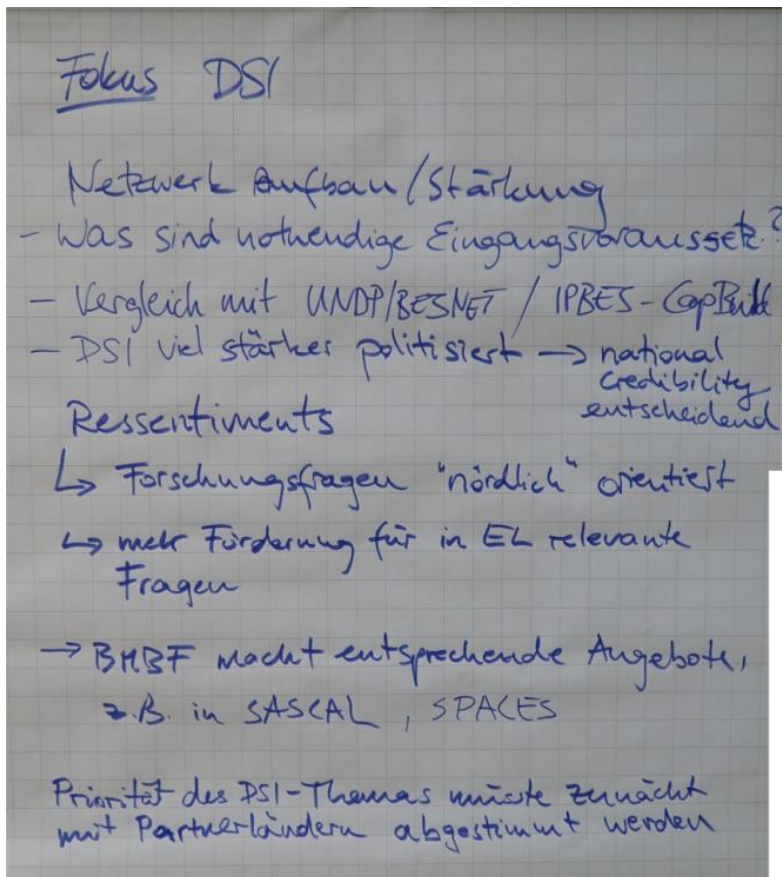 Fokus DSI
Netzwerk Aufbau/Stärkung
- Was sind notwendige Eingangsvoraussetz.?
- Vergleich mit UNDP/BESNET / IPBES-CapBuild
- DSI viel stärker politisiert → national
credibility
entscheidend
Ressentiments
↳ Forschungsfragen "nördlich" orientiert
↳ mehr Förderung für in EL relevante
Fragen
→ BMBF macht entsprechende Angebote,
z.B. in SASCAL, SPACES
Priorität des DSI-Themas müsste zunächt
mit Partnerländern abgestimmt werden